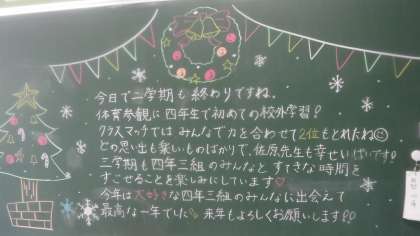 今日で二学期も終わりですね。
体育参観に四年生で初めての校外学習！
クラスマッチではみんなで力を合わせて2位もとれたね☺
どの思い出も楽しいものばかりで、佐原先生も幸せいっぱいです!!
三学期も四年三組のみんなと すてきな時間を
すごせることを楽しみにしています♡
今年は大好きな四年三組のみんなに出会えて
最高な一年でした。来年もよろしくお願いします!!